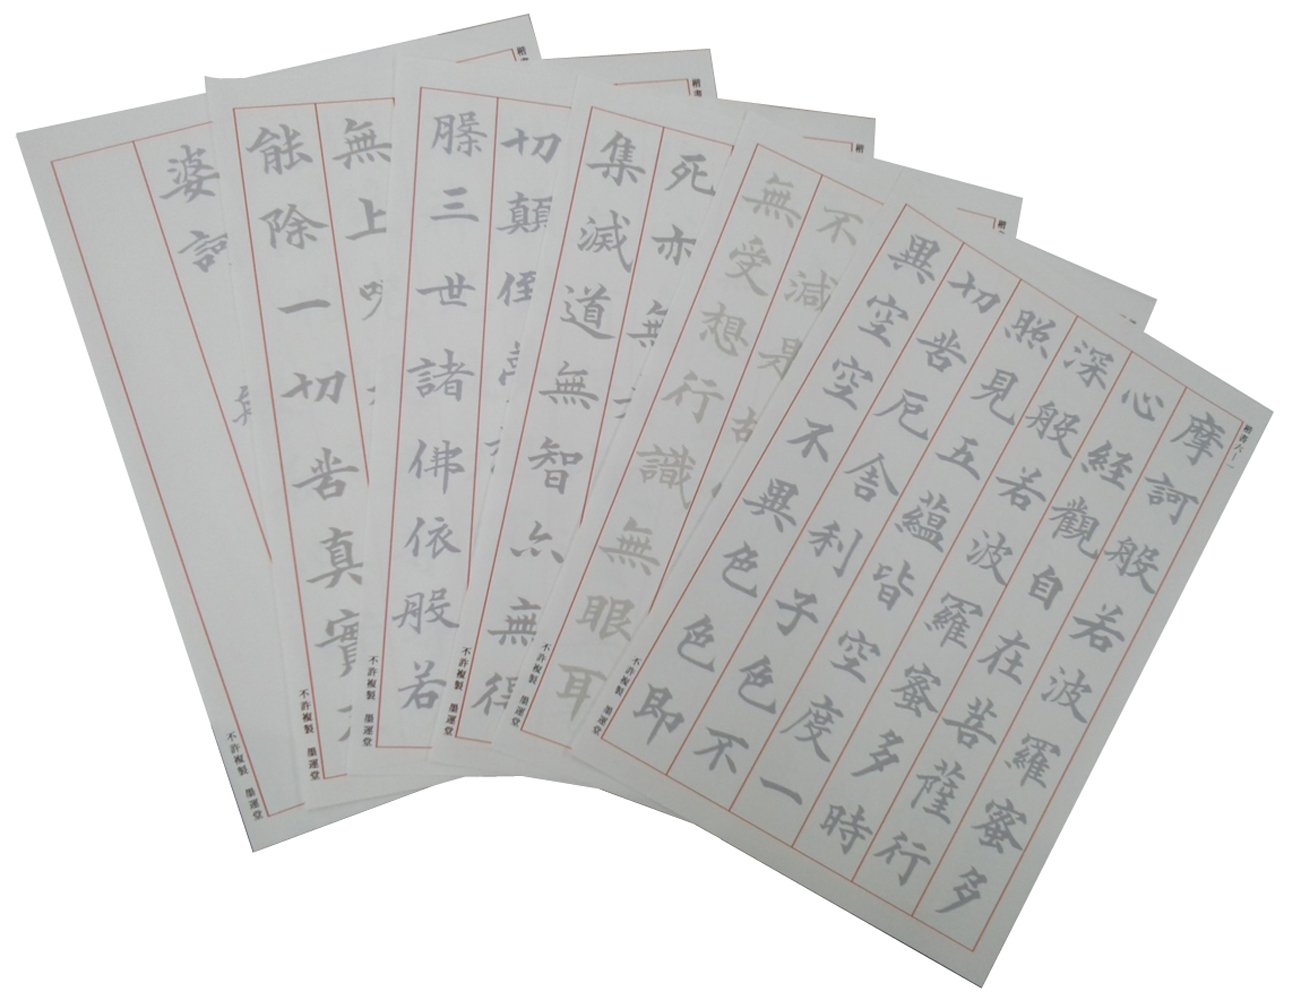 楷書六ー一
摩訶般若波羅蜜多
心經觀自在菩薩行
深般若波羅蜜多時
照見五蘊皆空度一
切苦厄舎利子色不
異空空不異色色即
不許複製 墨運堂
不減是故
無受想行識無眼耳
不許複製 墨運堂
死亦無
集滅道無智亦無得
不許複製 墨運堂
切顛倒
槃三世諸佛依般若
不許複製 墨運堂
無上呪
能除一切苦真實不
不許複製 墨運堂
婆訶
不許複製 墨運堂